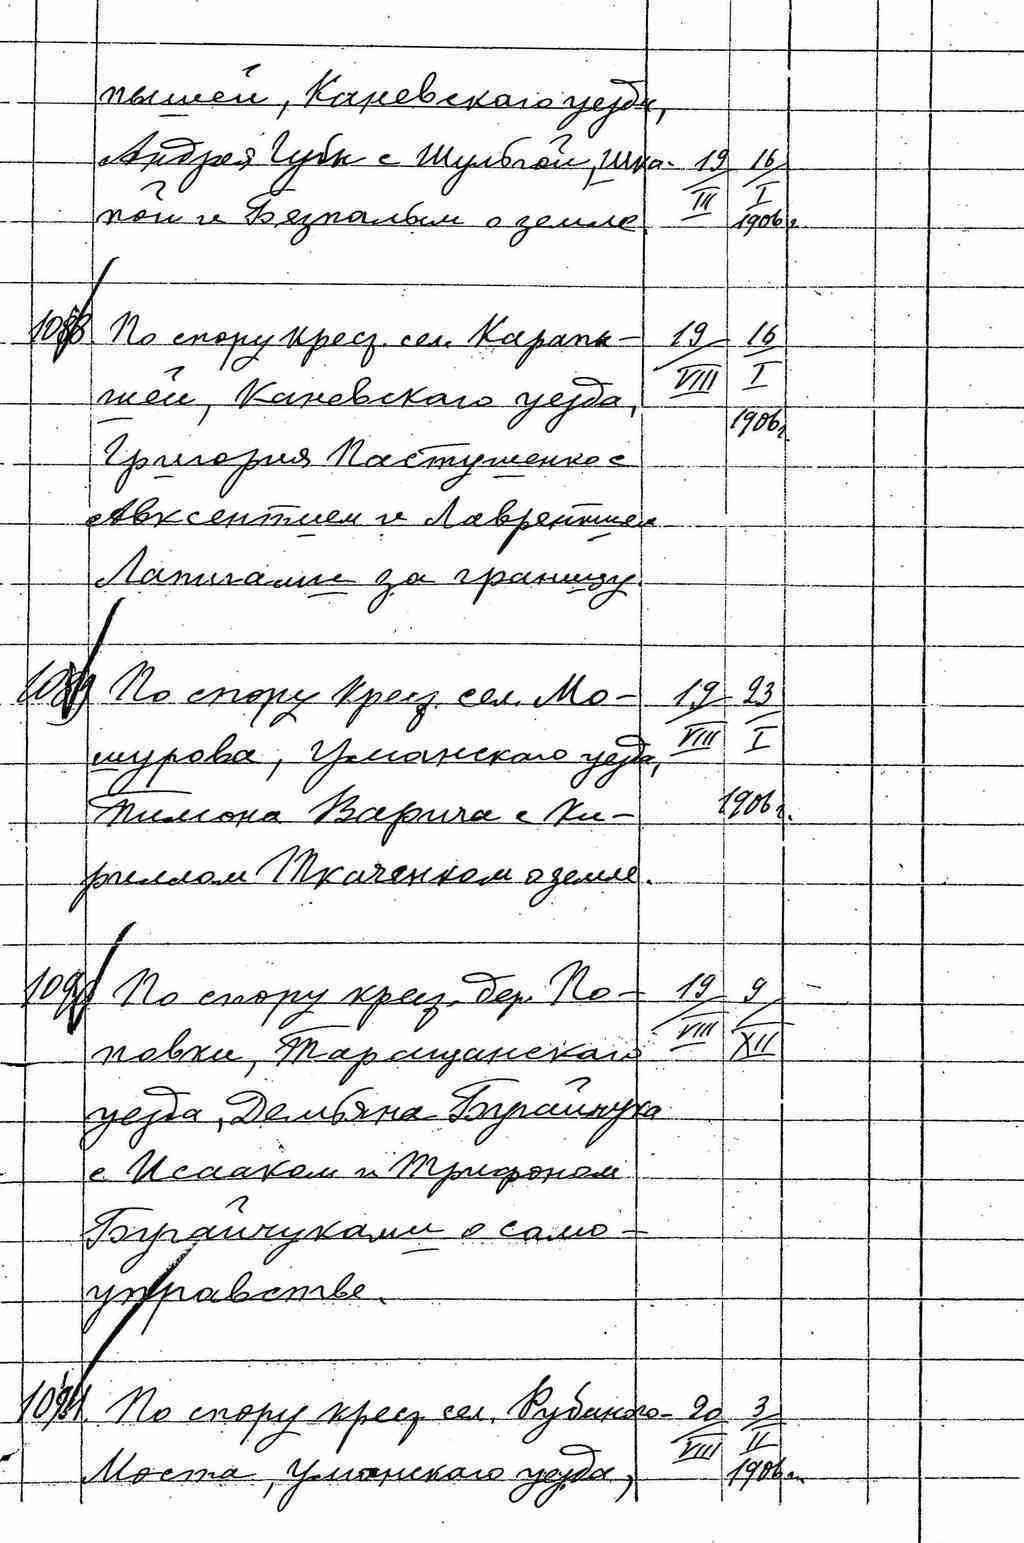 пышей, Каневскаго уезда,
Андрея Губы с Шульгой, Шка- 19 16
III I
пой и Безпалым о земле. 1906 г.
1088. По спору крест. сел. Карапы- 19 16
VIII I
шей, Каневскаго уезда, 1906 г.
Григория Пастушенко с
Авксентием и Лаврентием
Лапигами за границу.
1089 По спору крест. сел. Мо- 19 23
шурова, Уманскаго уезда, VIII I
Тимона Варича с Ки- 1906 г.
риллом Ткаченком о земле.
1090 По спору крест. дер. По- 19 9
VIII XII
повки, Таращанскаго
уезда, Демьяна Бугайчука
с Исааком и Трифоном
Бугайчуками о само-
управстве.
1091. По спору крест. сел. Рубаного- 20 3
VIII II
Моста, Уманскаго уезда, 1906 г.